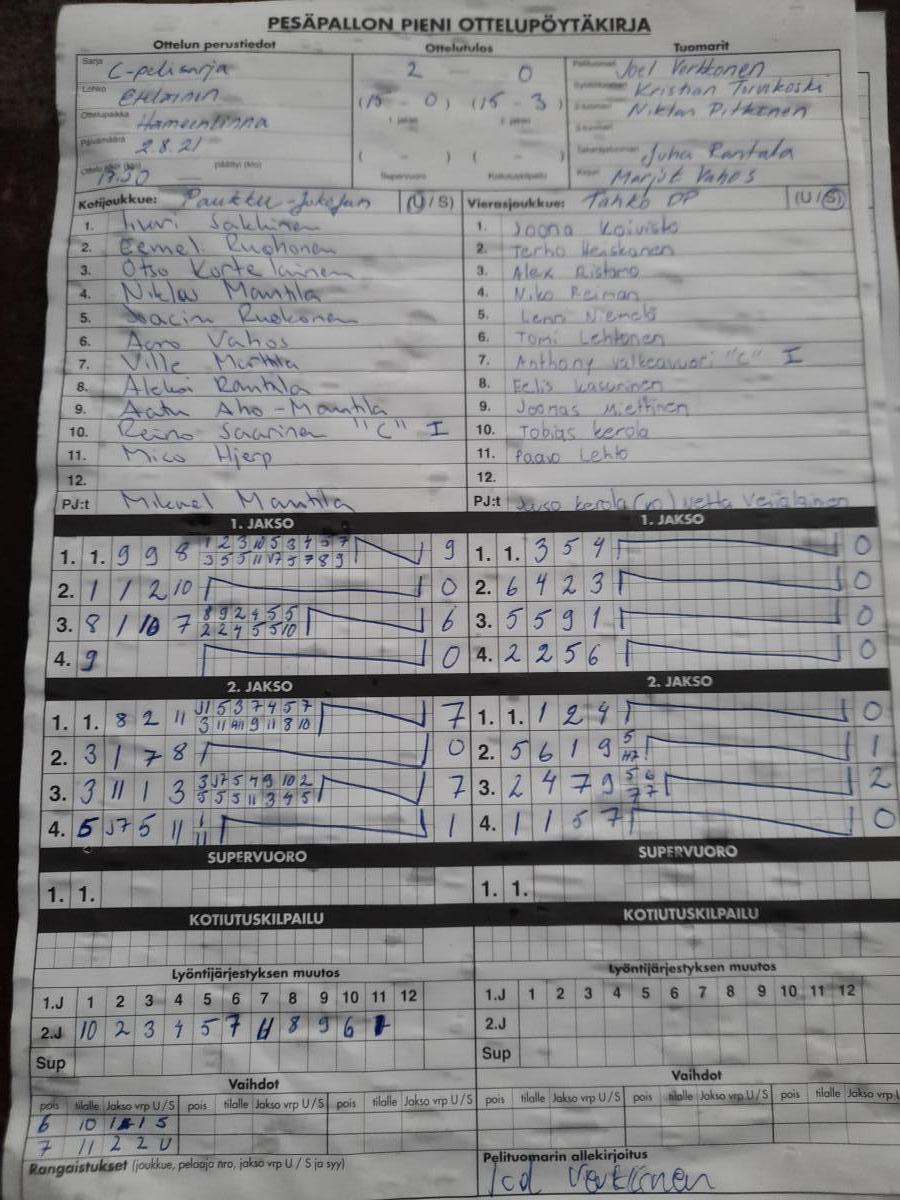 PESÄPALLON PIENI OTTELUPÖYTÄKIRJA
Ottelun perustiedot Ottelutulos Tuomarit
Sarja C-pelisarja 2 – 0 Joel Verkkonen
Lohko Eteläinen (15 - 0) (15 - 3) Kristian
Ottelupaikka Hämeenlinna 1. jakso 2. jakso Niklas Pitkänen
Päivämäärä 2.8.21
( - ) ( - ) Juha Rantala
17.30 päättyi (klo) Supervuoro Kotiutuskilpailu Marjut Vahos
Kotijoukkue: Paukku-Jokojan (U/S) Vierasjoukkue: Tahko PP (U/S)
1. Sakkinen 1. Joona Koivisto
2. Eemeli Ruohonen 2. Terho Heiskanen
3. Otso Kortelainen 3. Alex Ristamo
4. Niklas Mantila 4. Niko Reiman
5. Joacim Ruokonen 5. Lenni Niemelä
6. Aaro Vahos 6. Tomi Lehtonen
7. Ville Marttila 7. Anthony Valkeavuori "C" I
8. Aleksi Rantila 8. Eelis Kasurinen
9. Aatu Aho-Mantila 9. Joonas Miettinen
10. Reino Saarinen "C" I 10. Tobias Kerola
11. Mico Hjerp 11. Paavo Lehto
12. 12.
PJ:t Mikael Mantila PJ:t Kerola Vetta
1. JAKSO 1. JAKSO
1. 1. 9 9 8 1 2 3 10 5 3 4 5 7 9 1. 1. 3 5 4 0
3 5 5 11 5 7 8 9
2. 1 1 2 10 0 2. 6 4 2 3 0
3. 8 1 10 7 8 9 2 4 5 5 6 3. 5 5 9 1 0
2 2 4 5 5 10
4. 9 0 4. 2 2 5 6 0
2. JAKSO 2. JAKSO
1. 1. 8 2 11 5 3 7 4 5 7 7 1. 1. 1 2 4 0
3 11 9 11 8 10
2. 3 1 7 8 0 2. 5 6 1 9 5 1
3. 3 11 1 3 3 5 4 9 10 2 7 3. 2 4 7 9 5 6 2
5 5 5 11 3 4 5 7 7
4. 5 5 11 1 1 4. 1 1 5 7 0
11
SUPERVUORO SUPERVUORO
1. 1. 1. 1.
KOTIUTUSKILPAILU KOTIUTUSKILPAILU
Lyöntijärjestyksen muutos Lyöntijärjestyksen muutos
1.J 1 2 3 4 5 6 7 8 9 10 11 12 1.J 1 2 3 4 5 6 7 8 9 10 11 12
2.J 10 2 3 4 5 7 11 8 9 6 1 2.J
Sup Sup
Vaihdot Vaihdot
pois tilalle Jakso vrp U/S pois tilalle Jakso vrp U/S pois tilalle Jakso vrp U/S pois tilalle Jakso vrp U/S pois tilalle Jakso vrp U/S pois tilalle Jakso vrp U
6 10 1 1 S
7 11 2 2 U
Rangaistukset (joukkue, pelaaja nro, jakso vrp U / S ja syy) Pelituomarin allekirjoitus
Joel Verkkonen